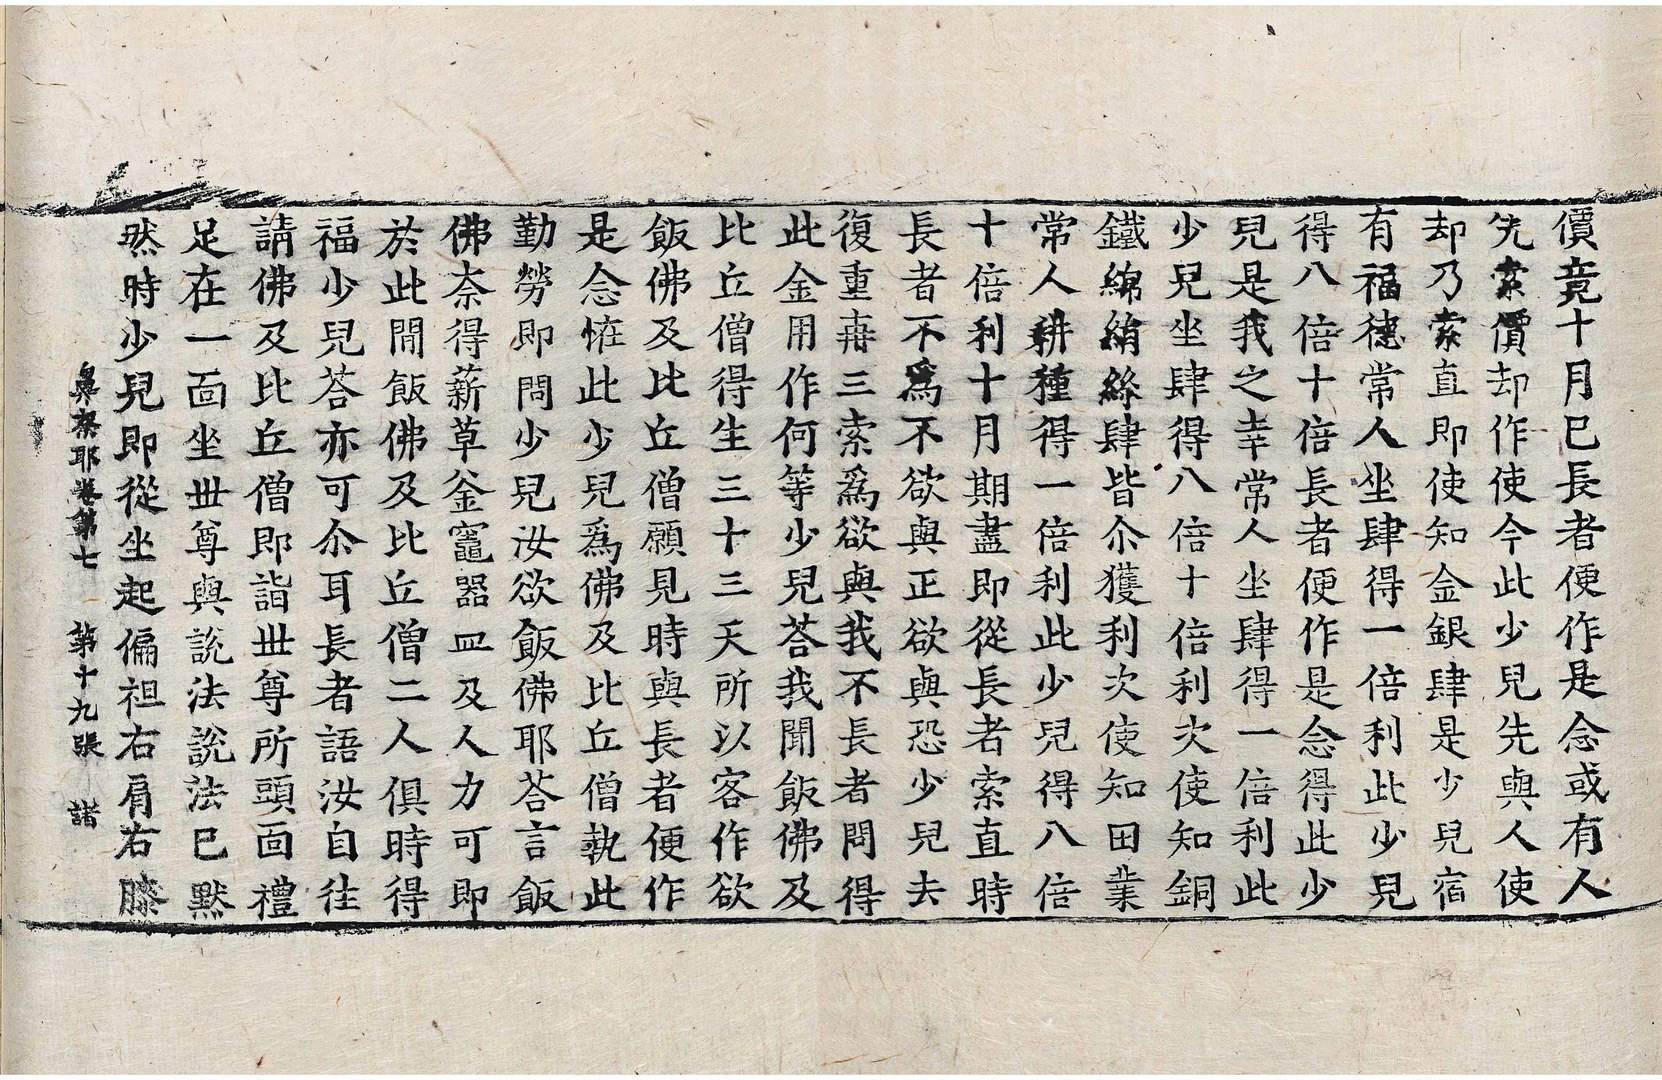 價竟十月已長者便作是念或有人
先索價却作使今此少兒先與人使
却乃索直即使知金銀肆是少兒宿
有福德常人坐肆得一倍利此少兒
得八倍十倍長者便作是念得此少
兒是我之幸常人坐肆得一倍利此
少兒坐肆得八倍十倍利次使知銅
鐵綿絹絲肆皆尒獲利次使知田業
常人耕種得一倍利此少兒得八倍
十倍利十月期盡即從長者索直時
長者不爲不欲與正欲與恐少兒去
復重毒三索爲欲與我不長者問得
此金用作何等少兒荅我聞飯佛及
比丘僧得生三十三天所以客作欲
飯佛及比丘僧願見時與長者便作
是念恠此少兒爲佛及比丘僧執此
勤勞即問少兒汝欲飯佛耶荅言飯
佛柰得薪草釜竈器皿及人力可即
於此間飯佛及比丘僧二人俱時得
福少兒荅亦可尒耳長者語汝自往
請佛及比丘僧即詣丗尊所頭面禮
足在一面坐丗尊與說法說法已默
然時少兒即從坐起偏袒右肩右膝
鼻柰耶卷第七　第十九張　諸